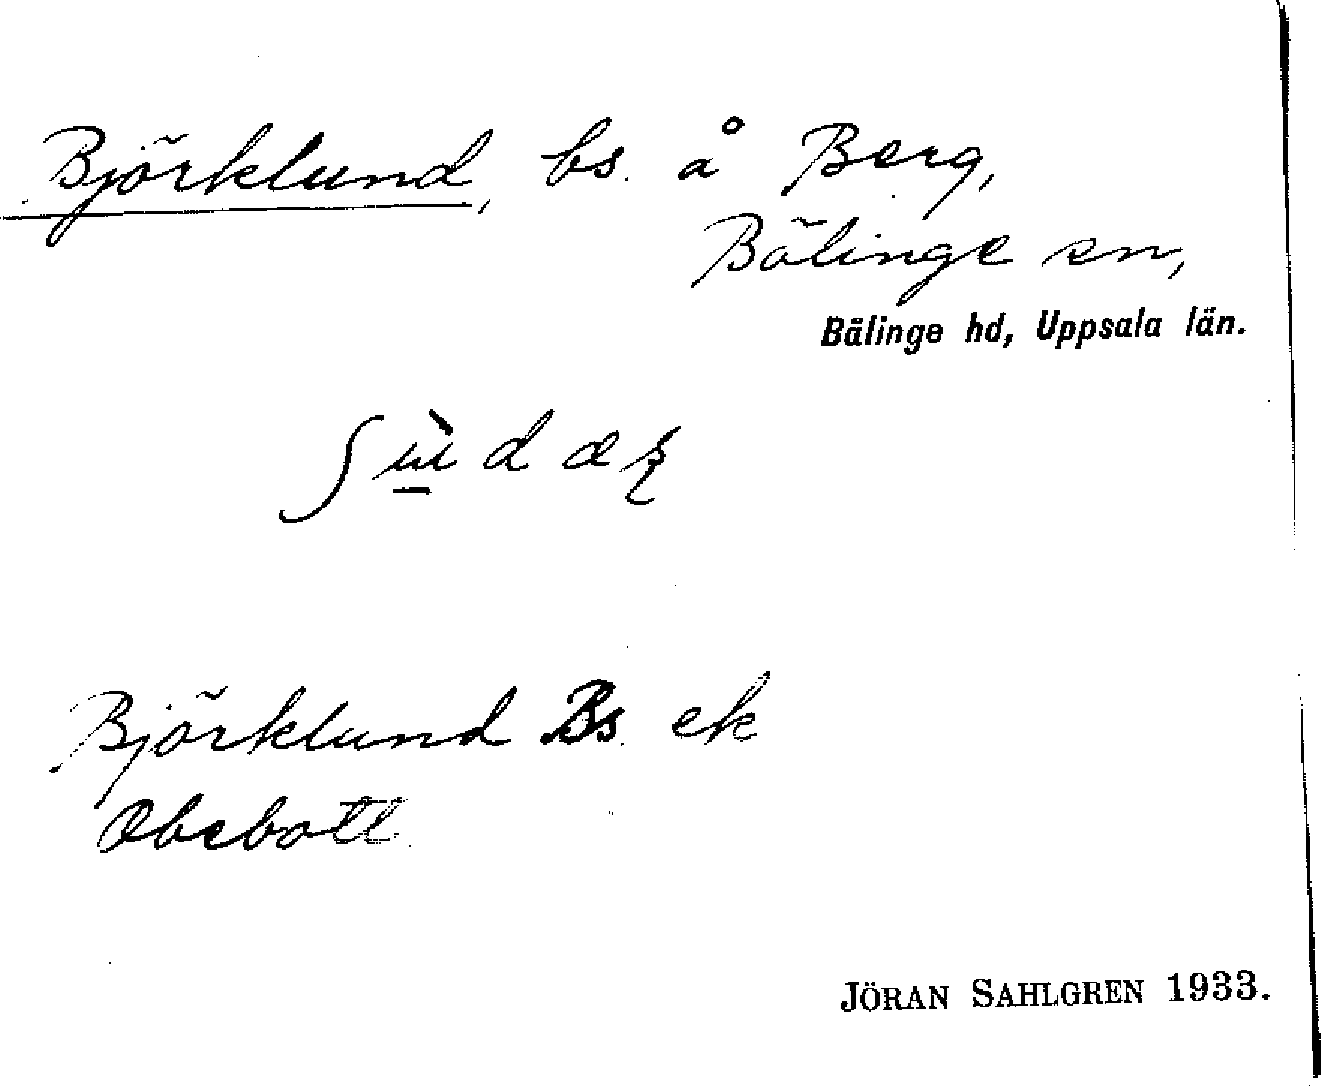 Björklund, bs. å Berg,
Bälinge sn,
Bälinge hd, Uppsala län.
Björklund Bs. ek
Obebott.
JÖRAN SAHLGREN 1933.